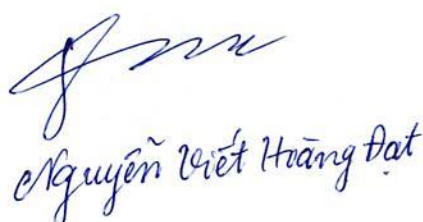 Nguyễn Viết Hoàng Đạt